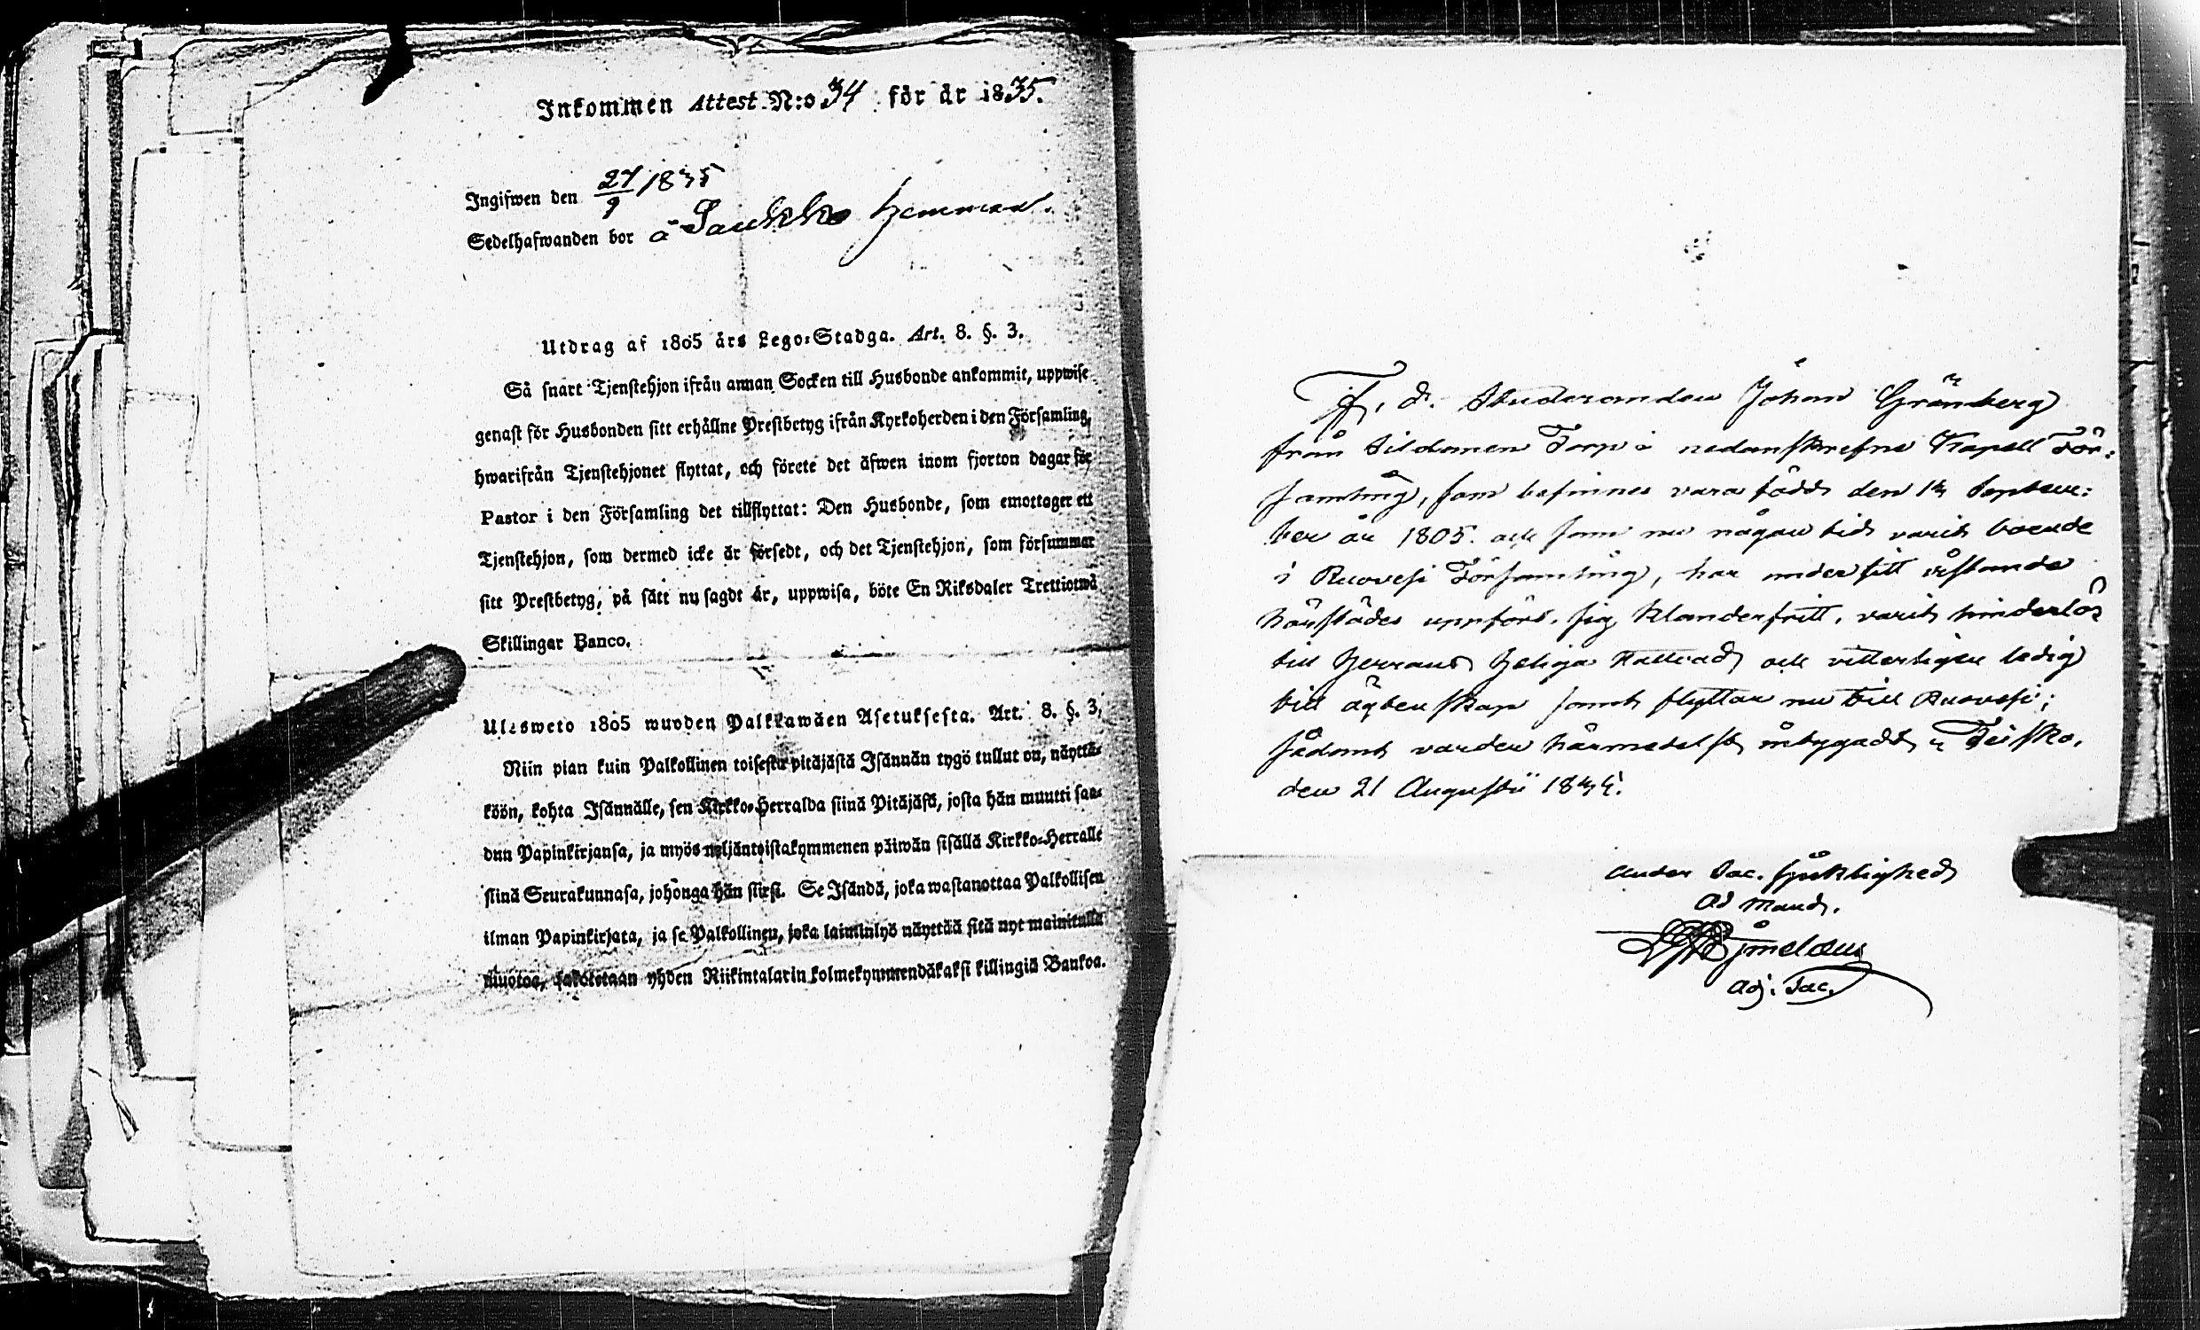 Inkommen Attest N:o 34 för år 1835.
Ingifwen den 27/9 1835
Sedelhafwanden bor å Saukko hemman.
Utdrag af 1805 års Lego-Stadga. Art. 8. §. 3.
Så snart Tjenstehjon ifrån annan Socken till Husbonde ankommit, uppwise
genast för Husbonden sitt erhållne Prestbetyg ifrån Kyrkoherden i den Församling,
hwarifrån Tjenstehjonet flyttat, och förete det äfwen inom fjorton dagar för
Pastor i den Församling det tillflyttat: Den Husbonde, som emottager ett
Tjenstehjon, som dermed icke är försedt, och det Tjenstehjon, som försummar
sitt Prestbetyg, på sätt nu sagdt är, uppwisa, böte En Riksdaler Trettiotwå
Skillingar Banco.
Ulosweto 1805 wuoden Palkkawäen Asetuksesta. Art. 8. §. 3.
Niin pian kuin Palkollinen toisesta pitäjästä Isännän tygö tullut on, näyttä-
köön, kohta Isännälle, sen Kirkko-Herralda siinä Pitäjäsä, josta hän muutti saa-
dun Papinkirjansa, ja myös neljäntoistakymmenen päiwän sisällä Kirkko-Herralle
siinä Seurakunnasa, johonga hän siirsi. Se Isändä, joka wastanottaa Palkollisen
ilman Papinkirjata, ja se Palkollinen, joka laiminlyö näyttää sitä nyt mainitulla
muotoa, sakotetaan yhden Riikintalarin kolmekymmendäkaksi killingiä Bankoa.
F. d. Studeranden Johan Grönberg
från Sildamen Torp i nedanskrefne Kapell För-
samling, som befinnes vara född den 13 Septem-
ber år 1805. och som nu någon tid varit boende
i Ruovesi Församling, har under sitt vistande
härstädes uppfört sig klanderfritt, varit hinderlös
till Herrans Heliga Nattvard och vitterligen ledig
till ägtenskap samt flyttar nu till Ruovesi;
sådant varder härmedelst intygadt, Teisko,
den 21 Augusti 1835.
under Sac. sjuklighed
ad Mand.
Adj. Sac.